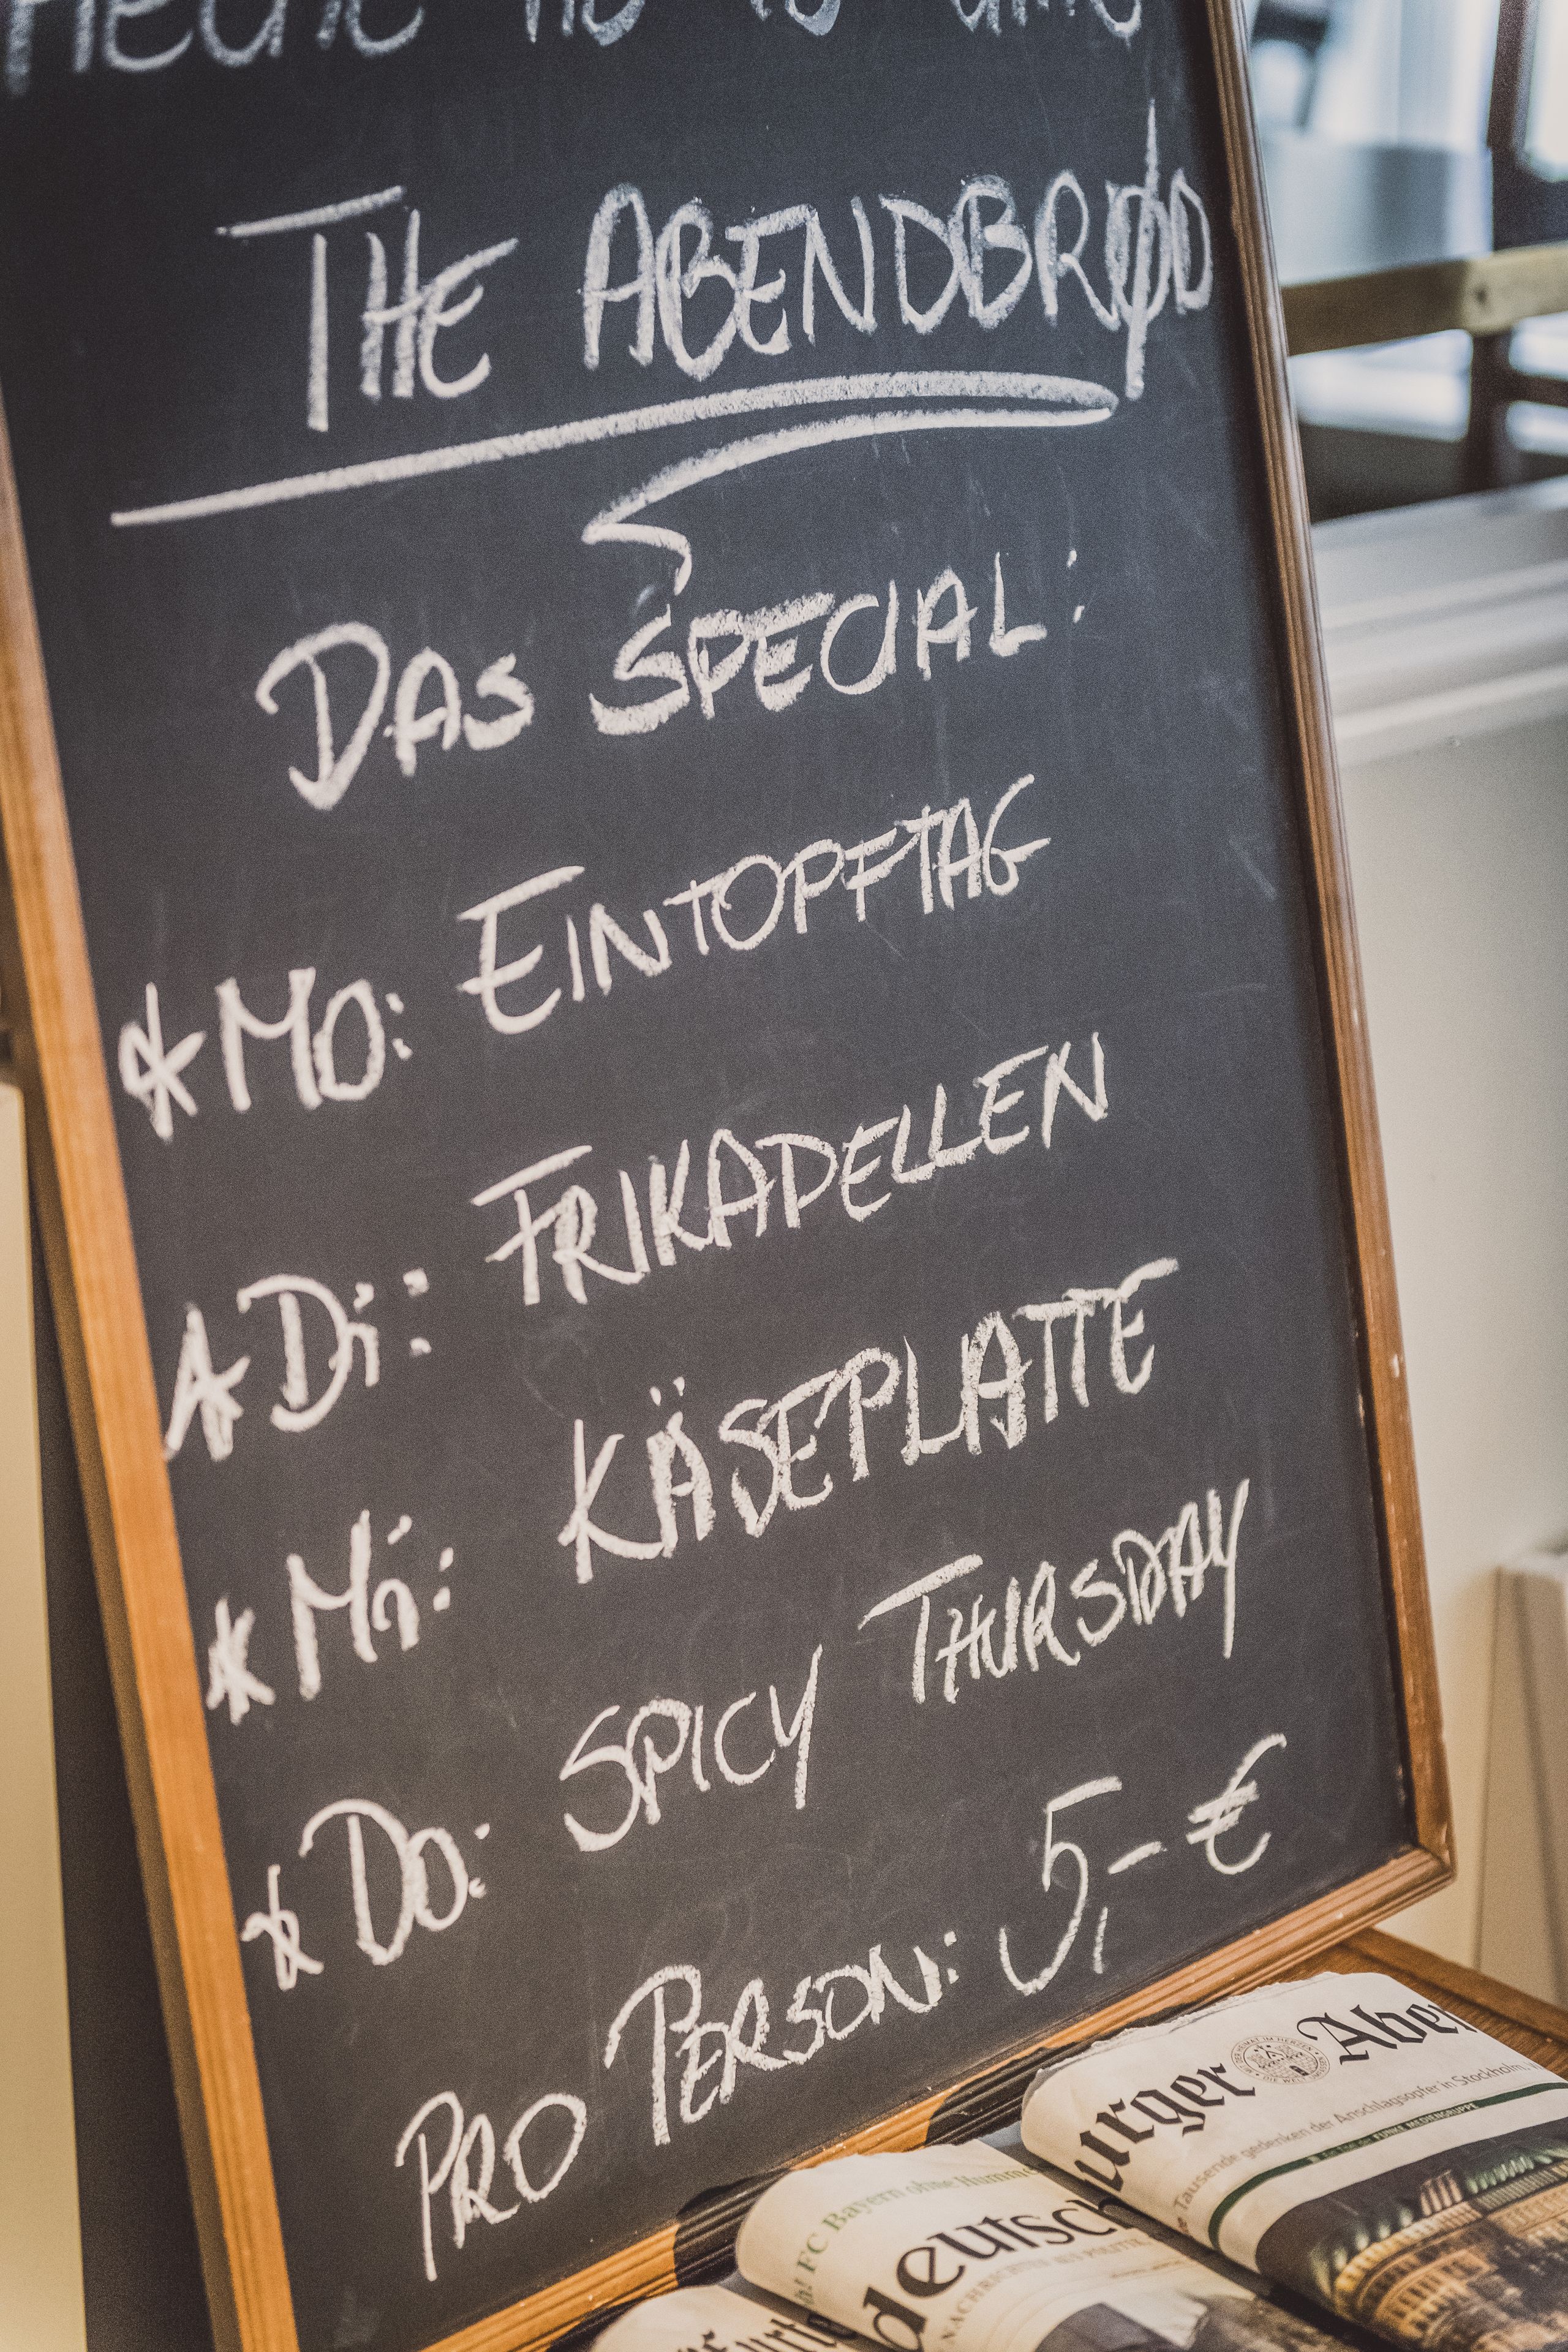 THE ABENDBRØD
DAS SPECIAL:
* MO: EINTOPFTAG
* Di: FRIKADELLEN
* Mi: KÄSEPLATTE
* DO: SPICY THURSDAY
PRO PERSON: 5,- €
urger Aben
Tausende gedenken der Anschlagsopfer in Stockholm.
FC Bayern ohne Humme
deutsch